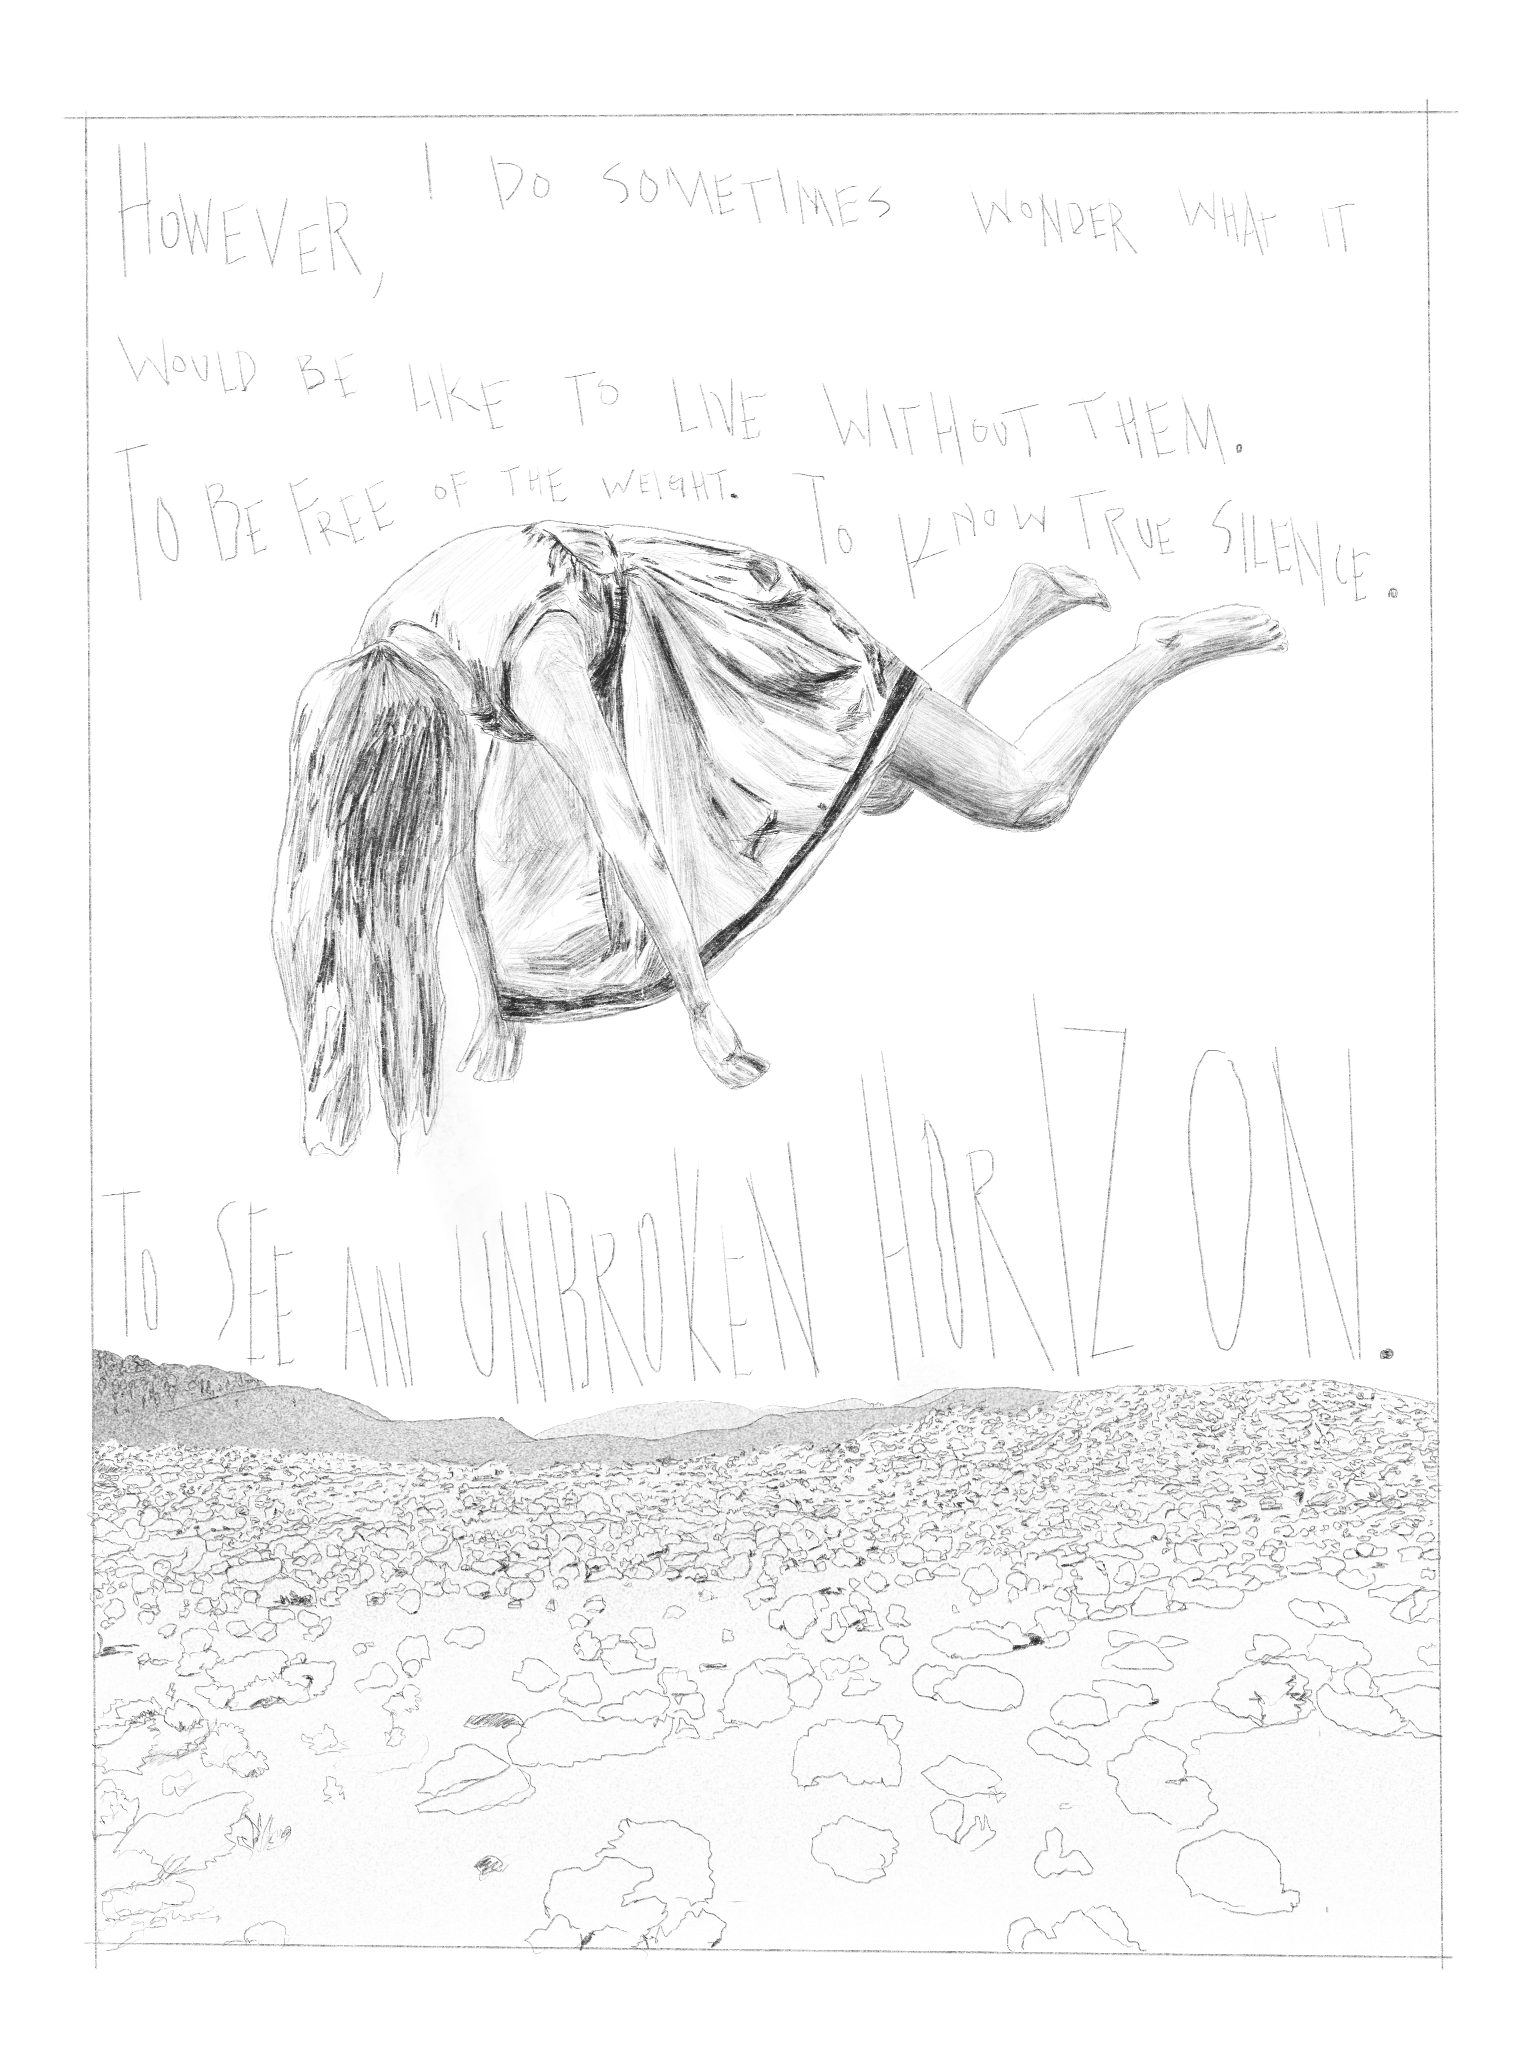 HOWEVER, I DO SOMETIMES WONDER WHAT IT
WOULD BE LIKE TO LIVE WITHOUT THEM.
TO BE FREE OF THE WEIGHT. TO KNOW TRUE SILENCE.
TO SEE AN UNBROKEN HORIZON.